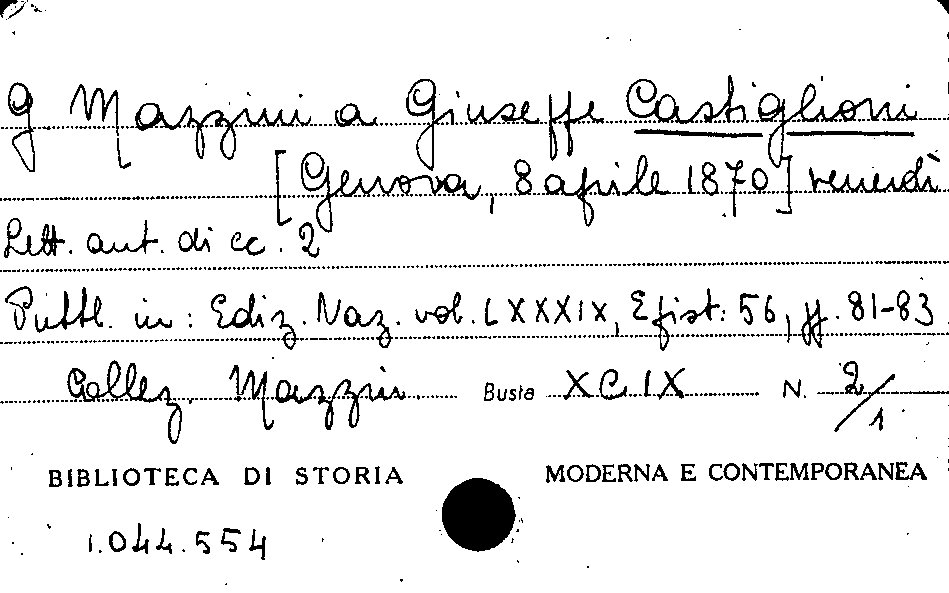 G Mazzini a Giuseppe Castiglioni
[Genova, 8 aprile 1870] venerdì
Lett. aut. di cc. 2
Pubbl. in: Ediz. Naz. vol. LXXXIX, Epist: 56, pp. 81-83
Collez. Mazzini Busta XCIX N. 2/1
BIBLIOTECA DI STORIA MODERNA E CONTEMPORANEA
1.044.554